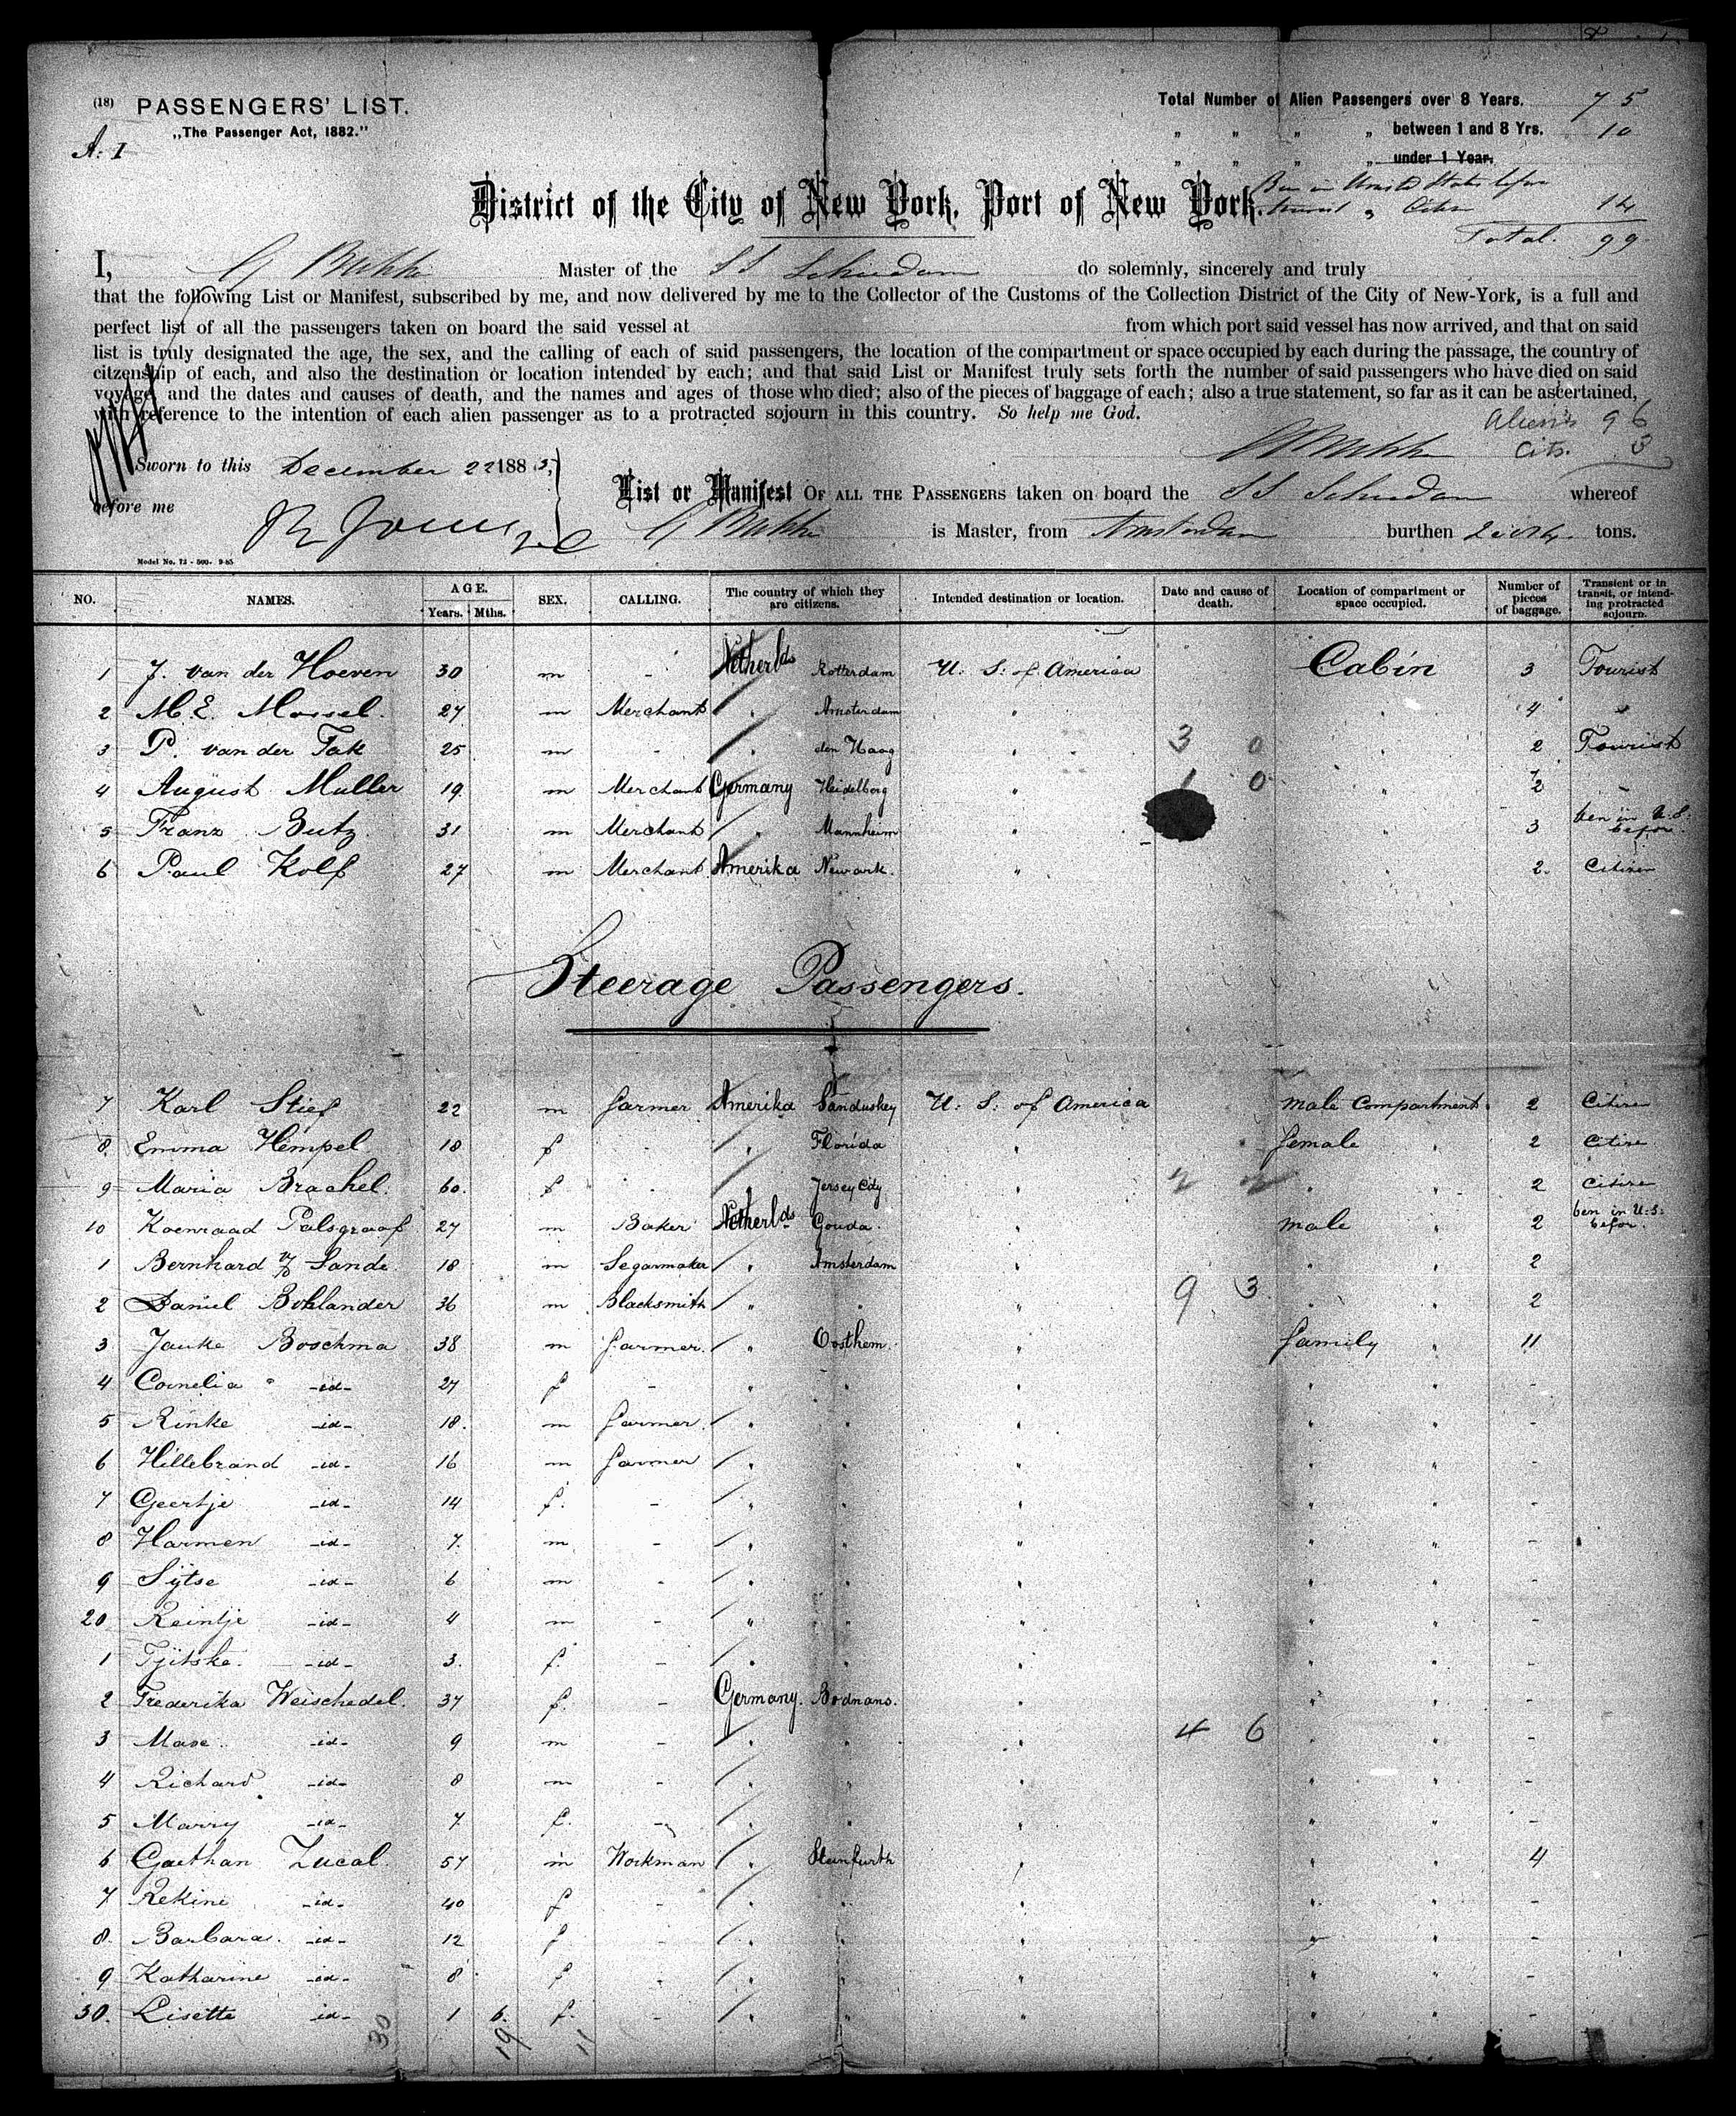 (18) PASSENGERS' LIST.
„The Passenger Act, 1882."
A: I
Total Number of Alien Passengers over 8 Years. 75
„ „ „ „ between 1 and 8 Yrs. 10
„ „ „ „ under 1 Year.
Ben in United States before
14
Total. 99
District of the City of New York, Port of New York.
I, G Bakker Master of the SS Schiedam do solemnly, sincerely and truly
that the following List or Manifest, subscribed by me, and now delivered by me to the Collector of the Customs of the Collection District of the City of New-York, is a full and
perfect list of all the passengers taken on board the said vessel at from which port said vessel has now arrived, and that on said
list is truly designated the age, the sex, and the calling of each of said passengers, the location of the compartment or space occupied by each during the passage, the country of
citzenship of each, and also the destination or location intended by each; and that said List or Manifest truly sets forth the number of said passengers who have died on said
voyage, and the dates and causes of death, and the names and ages of those who died; also of the pieces of baggage of each; also a true statement, so far as it can be ascertained,
with reference to the intention of each alien passenger as to a protracted sojourn in this country. So help me God.
Aliens 96
Cits. 3
Sworn to this December 22 1885,
before me
List or Manifest OF ALL THE PASSENGERS taken on board the SS Schiedam whereof
is Master, from Amsterdam burthen tons.
Model No. 12 - 500- 9-85
NO. NAMES. AGE. Years. Mths. SEX. CALLING. The country of which they are citizens. Intended destination or location. Date and cause of death. Location of compartment or space occupied. Number of pieces of baggage. Transient or in transit, or intending protracted sojourn.
1 J. van der Hoeven 30 m - Netherlds Rotterdam U: S: of America Cabin 3 Tourist
2 M.E. Mossel. 27 m Merchant " Amsterdam " " 4 "
3 P. van der Tak 25 m - " den Haag " 3 0 " 2 Tourist
4 August Muller 19 m Merchant Germany Heidelberg " 1 0 " 2 -
5 Franz Butz. 31 m Merchant " Mannheim " " 3 ben in U.S. befor.
6 Paul Kolf 27 m Merchant Amerika Newark. " 2. Citizen
Steerage Passengers.
7 Karl Stief 22 m farmer Amerika Sanduskey U: S: of America male Compartment 2 Citizen
8. Emma Hempel 18 f - " Florida " female " 2 Citize
9 Maria Brachel. 60. f. - " Jersey City " 2 2 " " 2 Citize
10 Koenraad Palsgraaf 27 m Baker Netherlds Gouda. " male " 2 ben in U:S: befor.
1 Bernhard v/d Sande. 18 m Segarmaker " Amsterdam " " " 2
2 Daniel Bohlander 36 m Blacksmith " " " 9 3 " " 2
3 Jauke Boschma 38 m farmer. " Oosthem. " family " 11
4 Cornelia " -id- 27 f - " " " " " -
5 Rinke -id- 18. m farmer. " " " " " -
6 Hillebrand -id- 16 m farmer " " " " " -
7 Geertje -id- 14 f. - " " " " " -
8 Harmen -id- 7. m - " " " " " -
9 Sijtse -id- 6 m - " " " " " -
20 Reintje -id- 4 m - " " " " " -
1 Tjitske. -id- 3. f. - " " " " " -
2 Frederika Weischedel. 37 f. - Germany. Bodnans. " " " -
3 Maxe. -id- 9 m - " " " 4 6 " " -
4 Richard -id- 8 m - " " " " " -
5 Marry -id- 7. f. - " " " " " -
6 Gaethan Lucal. 57 m Workman " Steinfurth " " " 4
7. Rekine -id- 40 f - " " " " " -
8. Barbara. -id- 12 f - " " " " " -
9 Katharine -id- 8 f - " " " " " -
30. Lisette -id- 1 6. f. - " " " " " -
30 19 11